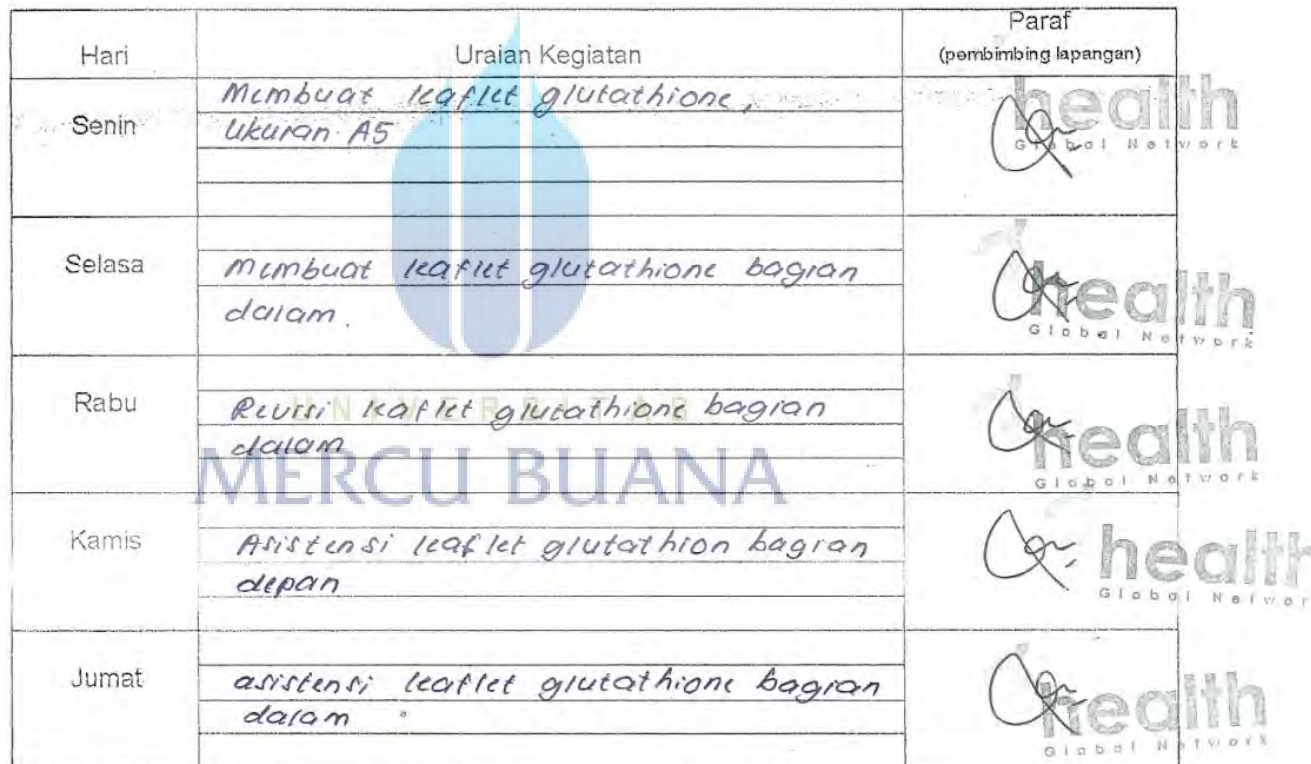 Hari
Uraian Kegiatan
Paraf
(pembimbing lapangan)
Senin
Membuat leaflet glutathione,
Ukuran A5
health
Global Network
Selasa
Membuat leaflet glutathione bagian
dalam.
health
Global Network
Rabu
Revisi leaflet glutathione bagian
dalam
health
Global Network
UNIVERSITAS
MERCU BUANA
Kamis
Asistensi leaflet glutathion bagian
depan
health
Global Networ
Jumat
asistensi leaflet glutathione bagian
dalam
health
Global Network